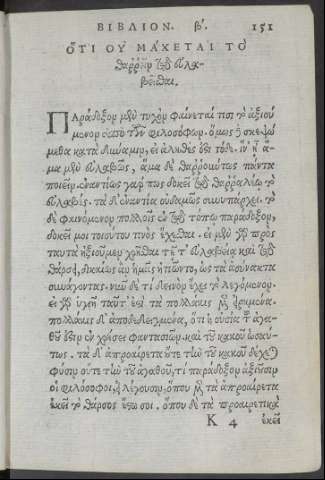 ΒΙΒΛΙΟΝ. β'. 151
ΟΤΙ ΟΥ ΜΑΧΕΤΑΙ ΤΟ
θαρρεῖν τῷ εὐλα-
βεῖσθαι.
Παράδοξον μὲν τυχὸν φαίνεται τισι τὸ ἀξιού
μενον ὑπὸ τῶν φιλοσόφων. ὅμως δὲ σκεψώ
μεθα κατὰ δύναμιν, εἰ ἀληθές ἐστι τόδε. ὅτι δεῖ ἅ-
μα μὲν εὐλαβῶς, ἅμα δὲ θαρρούντως πάντα
ποιεῖν. ἐναντίως γάρ πως δοκεῖ τῷ θαρραλέῳ τὸ
εὐλαβές. τὰ δ' ἐναντία οὐδαμῶς συνυπάρχει. τὸ
δὲ φαινόμενον πολλοῖς ἐν τῷ τόπῳ παράδοξον,
δοκεῖ μοι τοιούτου τινὸς ἔχεσθαι. εἰ μὲν γὰρ πρὸς
ταυτὰ ἠξιοῦμεν χρῆσθαι τῇ τ' εὐλαβείᾳ καὶ τῷ
θάρσει, δικαίως ἂν ἡμᾶς ᾐτιῶντο, ὡς τὰ ἀσύνακτα
συνάγοντας. νῦν δὲ τί δεινὸν ἔχει τὸ λεγόμενον.
εἰ γὰρ ὑγιῆ ταῦτ' ἐστὶ τὰ πολλάκις μὲν εἰρημένα.
πολλάκις δ' ἀποδεδειγμένα, ὅτι ἡ οὐσία τοῦ ἀγα-
θοῦ ἐστιν ἐν χρήσει φαντασιῶν. καὶ τοῦ κακοῦ ὡσαύ-
τως. τὰ δ' ἀπροαίρετα οὔτε τὴν τοῦ κακοῦ δέχεται
φύσιν οὔτε τὴν τοῦ ἀγαθοῦ, τί παράδοξον ἀξιοῦσιν
οἱ φιλόσοφοι, εἰ λέγουσιν. ὅπου μὲν τὰ ἀπροαίρετα
ἐκεῖ τὸ θάρσος ἔστω σοι. ὅπου δὲ τὰ προαιρετικὰ
K 4 ἐκεῖ